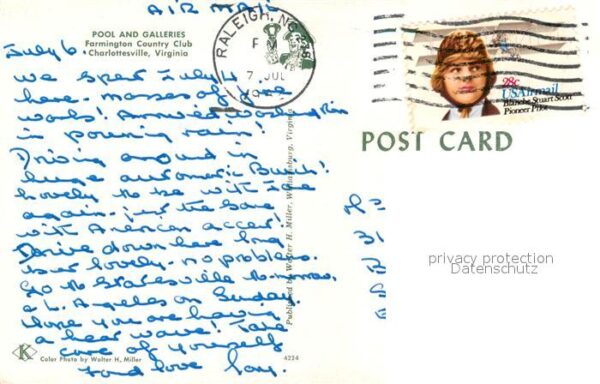 AIR MAIL
POOL AND GALLERIES
Farmington Country Club
Charlottesville, Virginia
July 6.
We spent July 4
here - masses of
works! Arrived Washington
in pouring rain!
Driving around in
huge automatic Buick!
Lovely to be with
again - just the same
with American accent!
Drive down here long
but lovely - no problems.
Go to Statesville tomorrow,
& L. Angeles on Sunday.
Hope you are having
a heat wave! Take
care of yourself
Fond love
RALEIGH, NC
PM
7 JUL
19
28c
USAirmail
Blanche Stuart Scott
Pioneer Pilot
POST CARD
Published by Walter H. Miller, Williamsburg, Virginia
31
privacy protection
Datenschutz
K
Color Photo by Walter H. Miller
4224